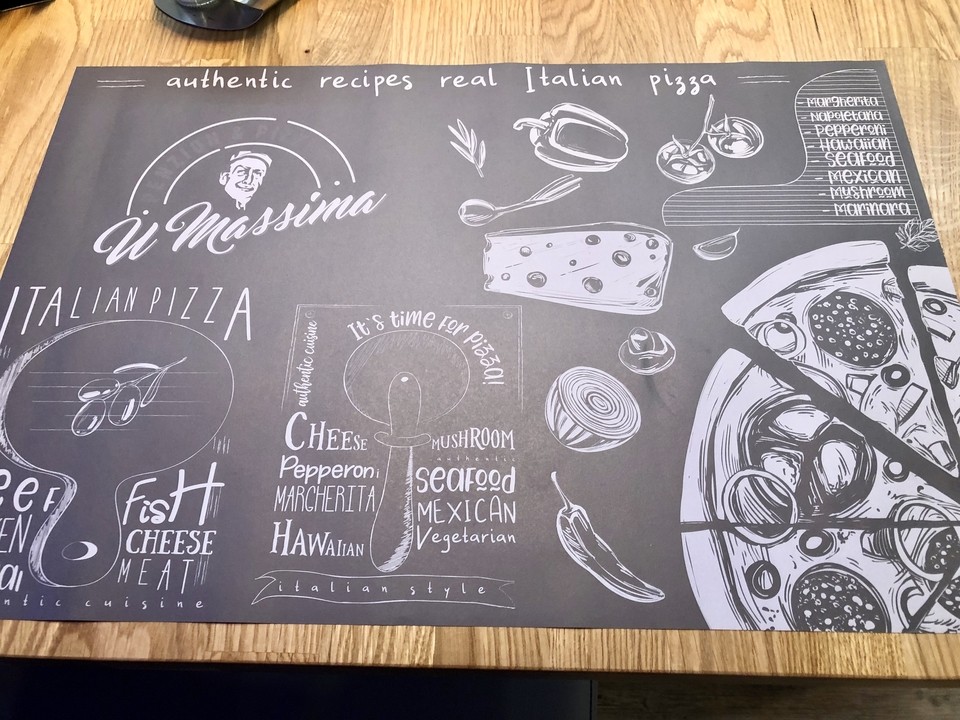 authentic recipes real Italian pizza
- Margherita
- Napoletana
- Pepperoni
- Hawaiian
- Seafood
- Mexican
- Mushroom
- Marinara
U Massima
ITALIAN PIZZA
FisH
CHEESE
MEAT
cuisine
It's time for pizza!
authentic cuisine
CHEESE
Pepperoni
MARGHERITA
HAWAIIAN
MUSHROOM
authentic
seafood
MEXICAN
Vegetarian
italian style